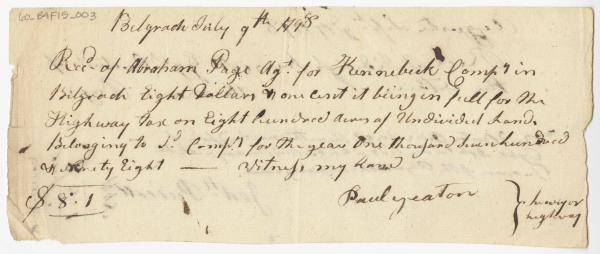 62.B4F15_003
Belgrade July 9th 1798
Recd of Abraham Page Agt for Kennebeck Compy in
Bilgrade Eight Dollars & one cent it being in full for the
Highway tax on Eight hundred acres of Undivided Land
belonging to sd Compy for the year one thousand seven hundred
& Ninety Eight — Witness my hand
$ 8:1 Paul yeaton } Surveyor
highway